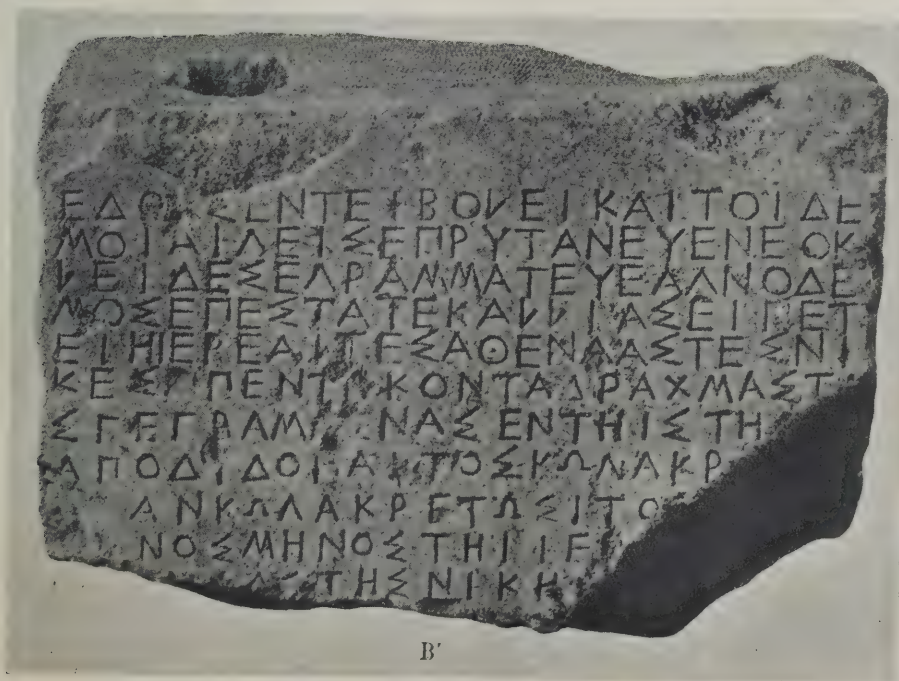 ΕΔΟΧΣΕΝΤΕΙΒΟΛΕΙΚΑΙΤΟΙΔΕ
ΜΟΙΑΙΓΕΙΣΕΠΡΥΤΑΝΕΥΕΝΕΟΚ
ΛΕΙΔΕΣΕΓΡΑΜΜΑΤΕΥΕΑΓΝΟΔΕ
ΜΟΣΕΠΕΣΤΑΤΕΚΑΛΛΙΑΣΕΙΠΕΤ
ΕΙΗΙΕΡΕΑΙΤΕΣΑΘΕΝΑΑΣΤΕΣΝΙ
ΚΕΣΠΕΝΤΕΚΟΝΤΑΔΡΑΧΜΑΣΤ
ΣΓΕΓΡΑΜ ΝΑΣΕΝΤΗΙΣΤΗ
ΑΠΟΔΙΔΟΝΑΙΤΟΣΚΩΛΑΚΡ
ΑΝΚΩΛΑΚΡΕΤΩΣΙΤΟ
ΝΟΣΜΗΝΟΣΤΗΙΙΕ
ΤΗΣΝΙΚΗ
Β′